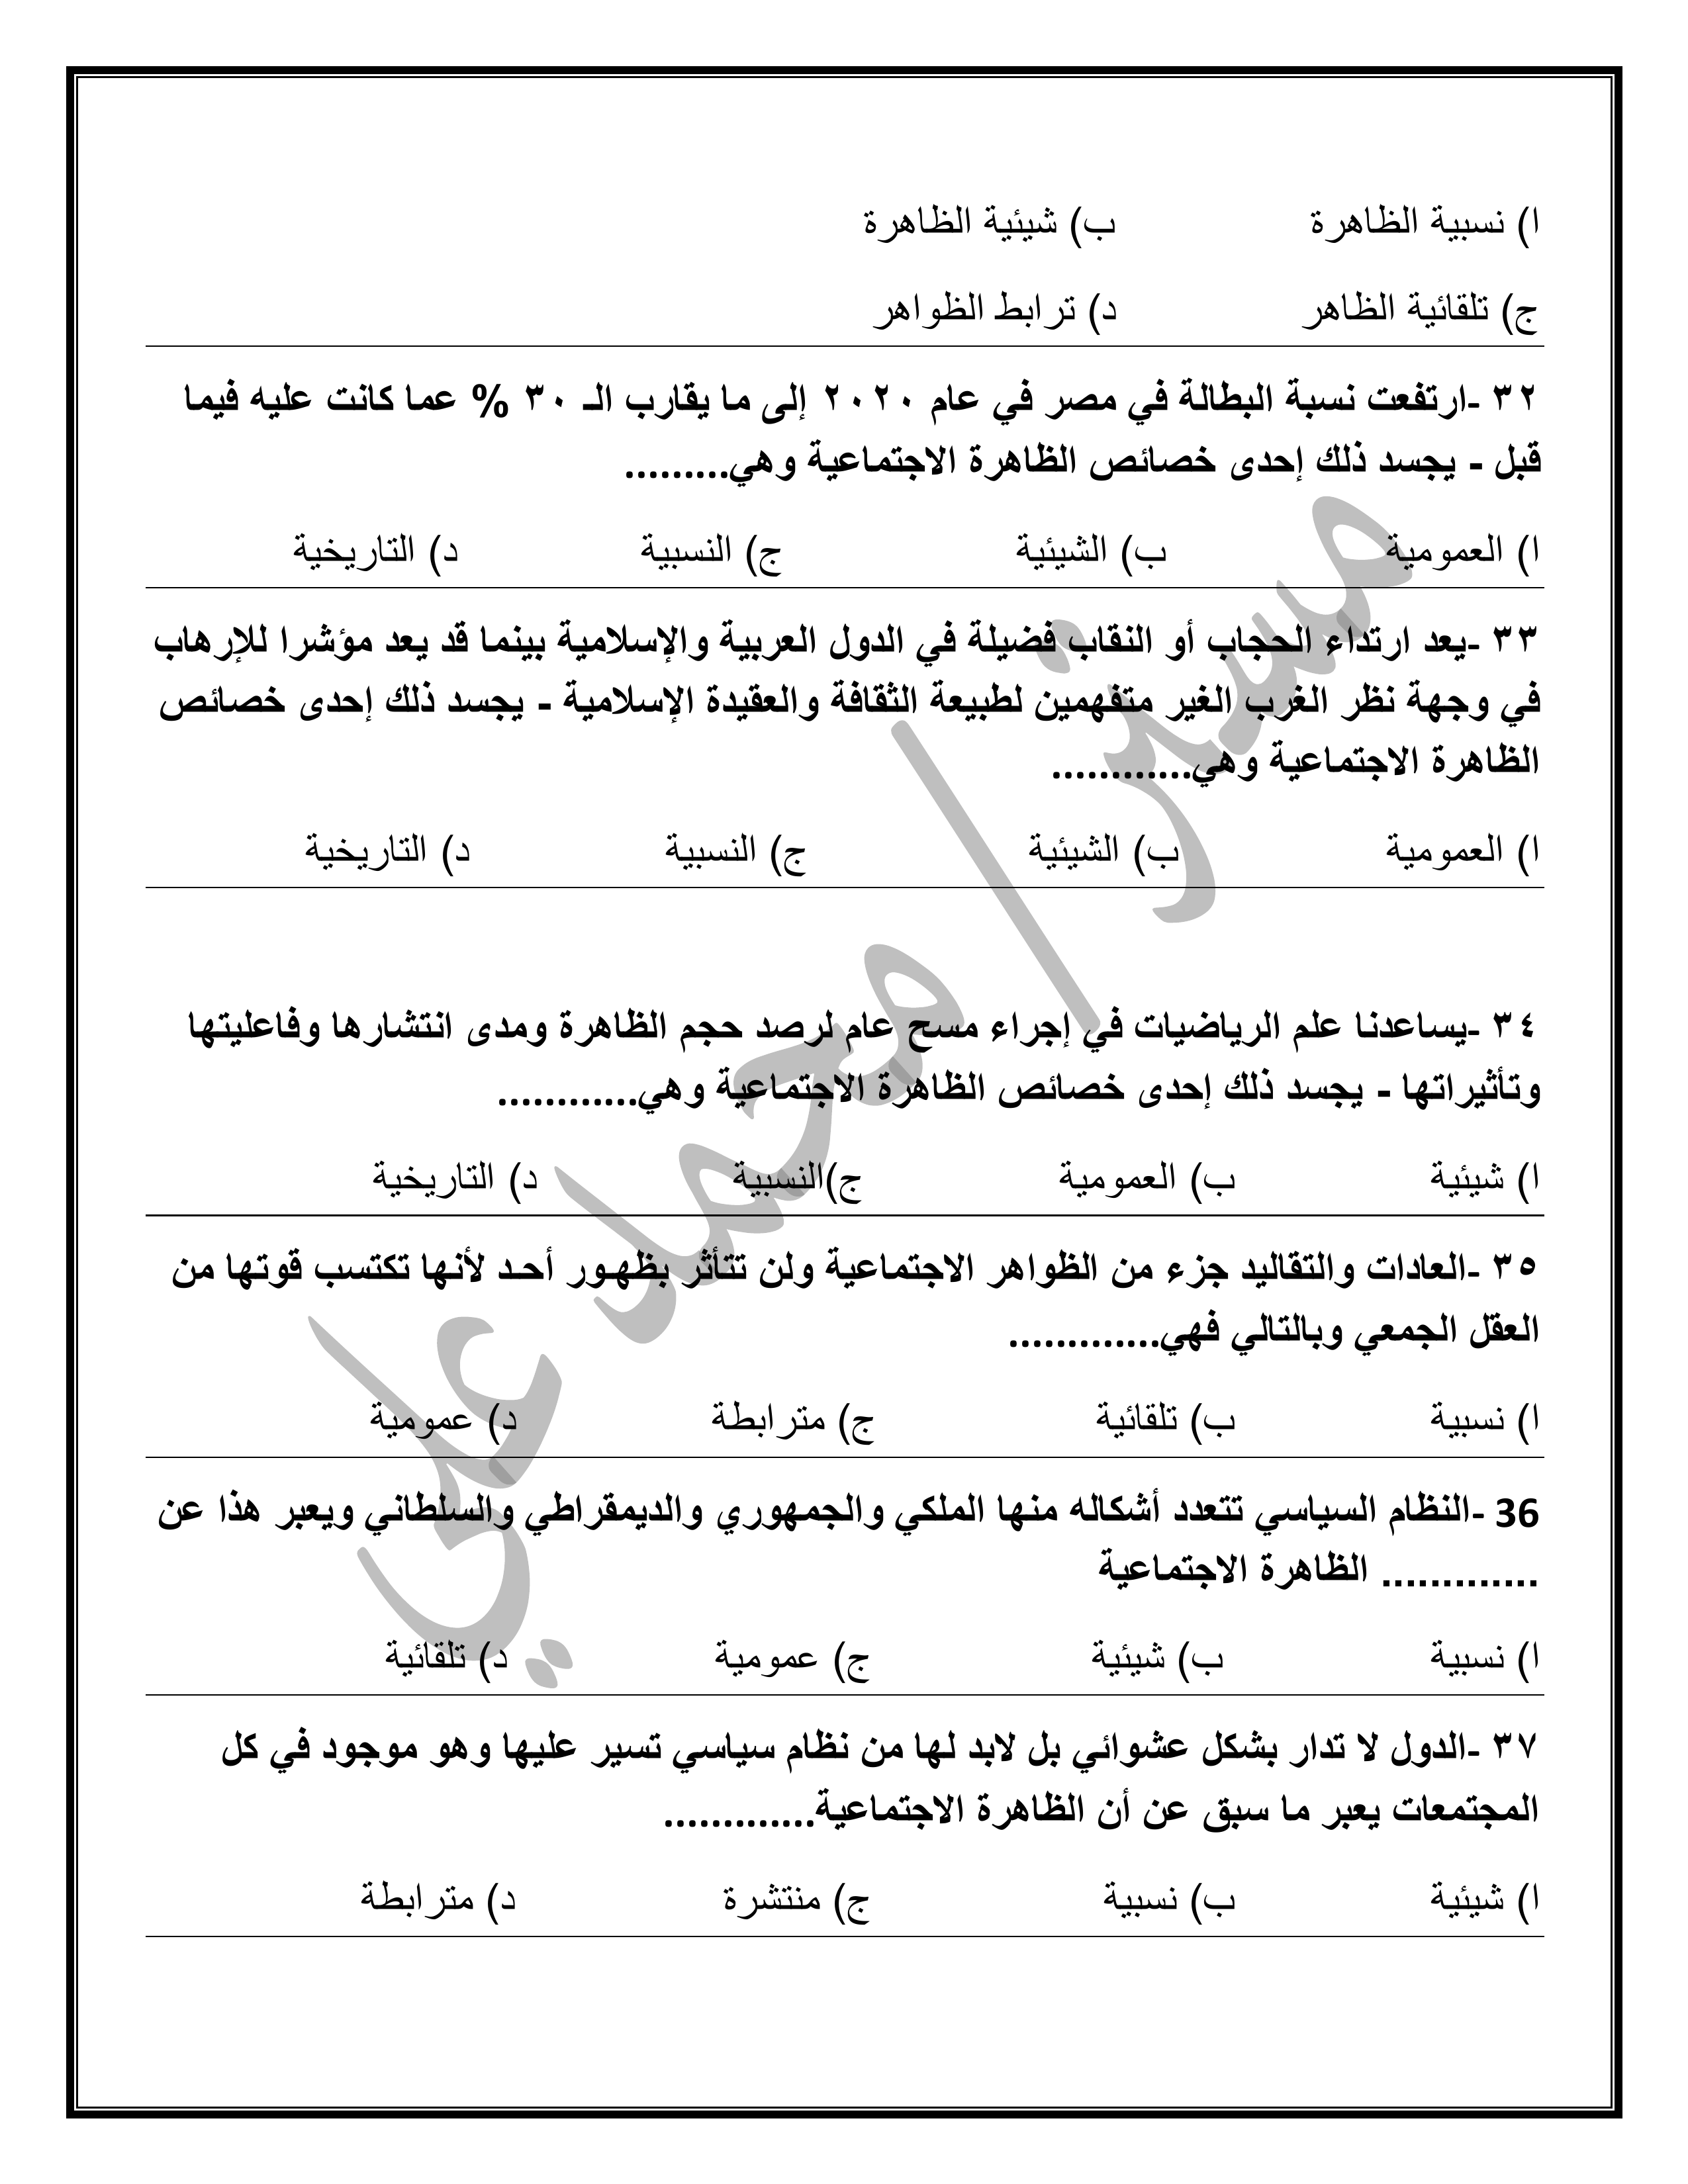 ا) نسبية الظاهرة ب) شيئية الظاهرة
ج) تلقائية الظاهر د) ترابط الظواهر
٣٢ -ارتفعت نسبة البطالة في مصر في عام ٢٠٢٠ إلى ما يقارب الـ ٣٠ % عما كانت عليه فيما
قبل - يجسد ذلك إحدى خصائص الظاهرة الاجتماعية وهي.........
ا) العمومية ب) الشيئية ج) النسبية د) التاريخية
٣٣ -يعد ارتداء الحجاب أو النقاب فضيلة في الدول العربية والإسلامية بينما قد يعد مؤشرا للإرهاب
في وجهة نظر الغرب الغير متفهمين لطبيعة الثقافة والعقيدة الإسلامية - يجسد ذلك إحدى خصائص
الظاهرة الاجتماعية وهي............
ا) العمومية ب) الشيئية ج) النسبية د) التاريخية
٣٤ -يساعدنا علم الرياضيات في إجراء مسح عام لرصد حجم الظاهرة ومدى انتشارها وفاعليتها
وتأثيراتها - يجسد ذلك إحدى خصائص الظاهرة الاجتماعية وهي............
ا) شيئية ب) العمومية ج)النسبية د) التاريخية
٣٥ -العادات والتقاليد جزء من الظواهر الاجتماعية ولن تتأثر بظهـور أحـد لأنها تكتسب قوتها من
العقل الجمعي وبالتالي فهي.............
ا) نسبية ب) تلقائية ج) مترابطة د) عمومية
36 -النظام السياسي تتعدد أشكاله منها الملكي والجمهوري والديمقراطي والسلطاني ويعبر هذا عن
............. الظاهرة الاجتماعية
ا) نسبية ب) شيئية ج) عمومية د) تلقائية
٣٧ -الدول لا تدار بشكل عشوائي بل لابد لها من نظام سياسي تسير عليها وهو موجود في كل
المجتمعات يعبر ما سبق عن أن الظاهرة الاجتماعية.............
ا) شيئية ب) نسبية ج) منتشرة د) مترابطة
مستر/محمد علي